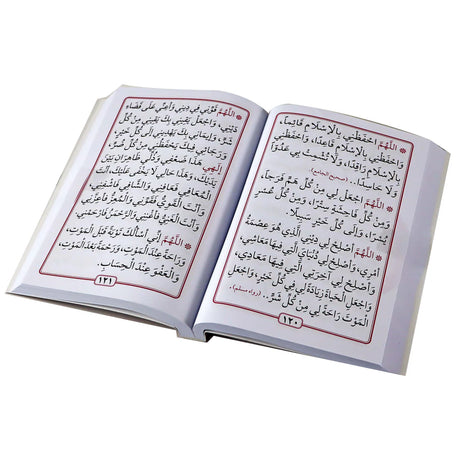 * اللَّهُمَّ احْفَظْنِي بِالْإِسْلَامِ قَائِماً،
وَاحْفَظْنِي بِالْإِسْلَامِ قَاعِدًا، وَاحْفَظْنِي
بِالْإِسْلَامِ رَاقِدًا، وَلَا تُشْمِتْ بِي عَدُوًّا
وَلَا حَاسِدًا.. (صحيح الجامع)
* اللَّهُمَّ اجْعَلْ لِي مِنْ كُلِّ هَمٍّ فَرَجًا،
وَمِنْ كُلِّ فَاحِشَةٍ سِتْرًا، وَمِنْ كُلِّ عُسْرٍ
يُسْرًا، وَإِلَى كُلِّ خَيْرٍ سَبِيلًا.
* اللَّهُمَّ أَصْلِحْ لِي دِينِي الَّذِي هُوَ عِصْمَةُ
أَمْرِي، وَأَصْلِحْ لِي دُنْيَايَ الَّتِي فِيهَا مَعَاشِي،
وَأَصْلِحْ لِي آخِرَتِي الَّتِي فِيهَا مَعَادِي،
وَاجْعَلِ الْحَيَاةَ زِيَادَةً لِي فِي كُلِّ خَيْرٍ، وَاجْعَلِ
الْمَوْتَ رَاحَةً لِي مِنْ كُلِّ شَرٍّ.. (رواه مسلم).
١٢٠
* اللَّهُمَّ قَوِّنِي فِي دِينِي وَأَعِنِّي عَلَى قَضَاءِ
دَيْنِي، وَاجْعَلْ يَقِينِي بِكَ يَقِينِي مِنْ كُلِّ
شَرٍّ، وَإِيمَانِي بِكَ يَهْدِينِي إِلَى كُلِّ خَيْرٍ،
وَرَجَائِي فِيكَ يَحْفَظُنِي مِنْ كُلِّ ضُرٍّ
إِلَهِي هَذَا ضَعْفِي وَذُلِّي ظَاهِرَانِ بَيْنَ
يَدَيْكَ، وَهَذَا حَالِي لَا يَخْفَى عَلَيْكَ، أَنْتَ
الْمُعَافِي فَعَافِنِي، وَالشَّافِي فَاشْفِنِي،
وَأَنْتَ الْقَوِيُّ فَقَوِّنِي، وَالْمُعِزُّ فَأَعِزَّنِي،
وَأَنْتَ الْغَنِيُّ فَأَغْنِنِي، وَالرَّحْمَنُ فَارْحَمْنِي.
* اللَّهُمَّ إِنِّي أَسْأَلُكَ تَوْبَةً قَبْلَ الْمَوْتِ،
وَرَاحَةً عِنْدَ الْمَوْتِ، وَرَحْمَةً بَعْدَ الْمَوْتِ،
وَالْعَفْوَ عِنْدَ الْحِسَابِ.
١٢١